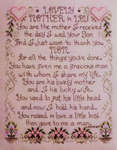 LOVELY
MOTHER IN LAW
You are the mother I received
the day I wed your son
And I just want to thank you
MOM
for all the things you've done.
You have given me a gracious man
with whom I share my life.
You are his lovely mother
and I his lucky wife.
You used to pat his little head
and now I hold his hand.
You raised in love a little boy
then gave to me a man.